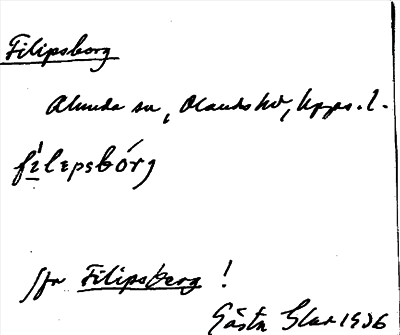 Filipsborg
Alunda sn, Olands hd, Upps. l.
fı̣́lepsbórg
jfr Filipsberg !
Gösta Glar 1936